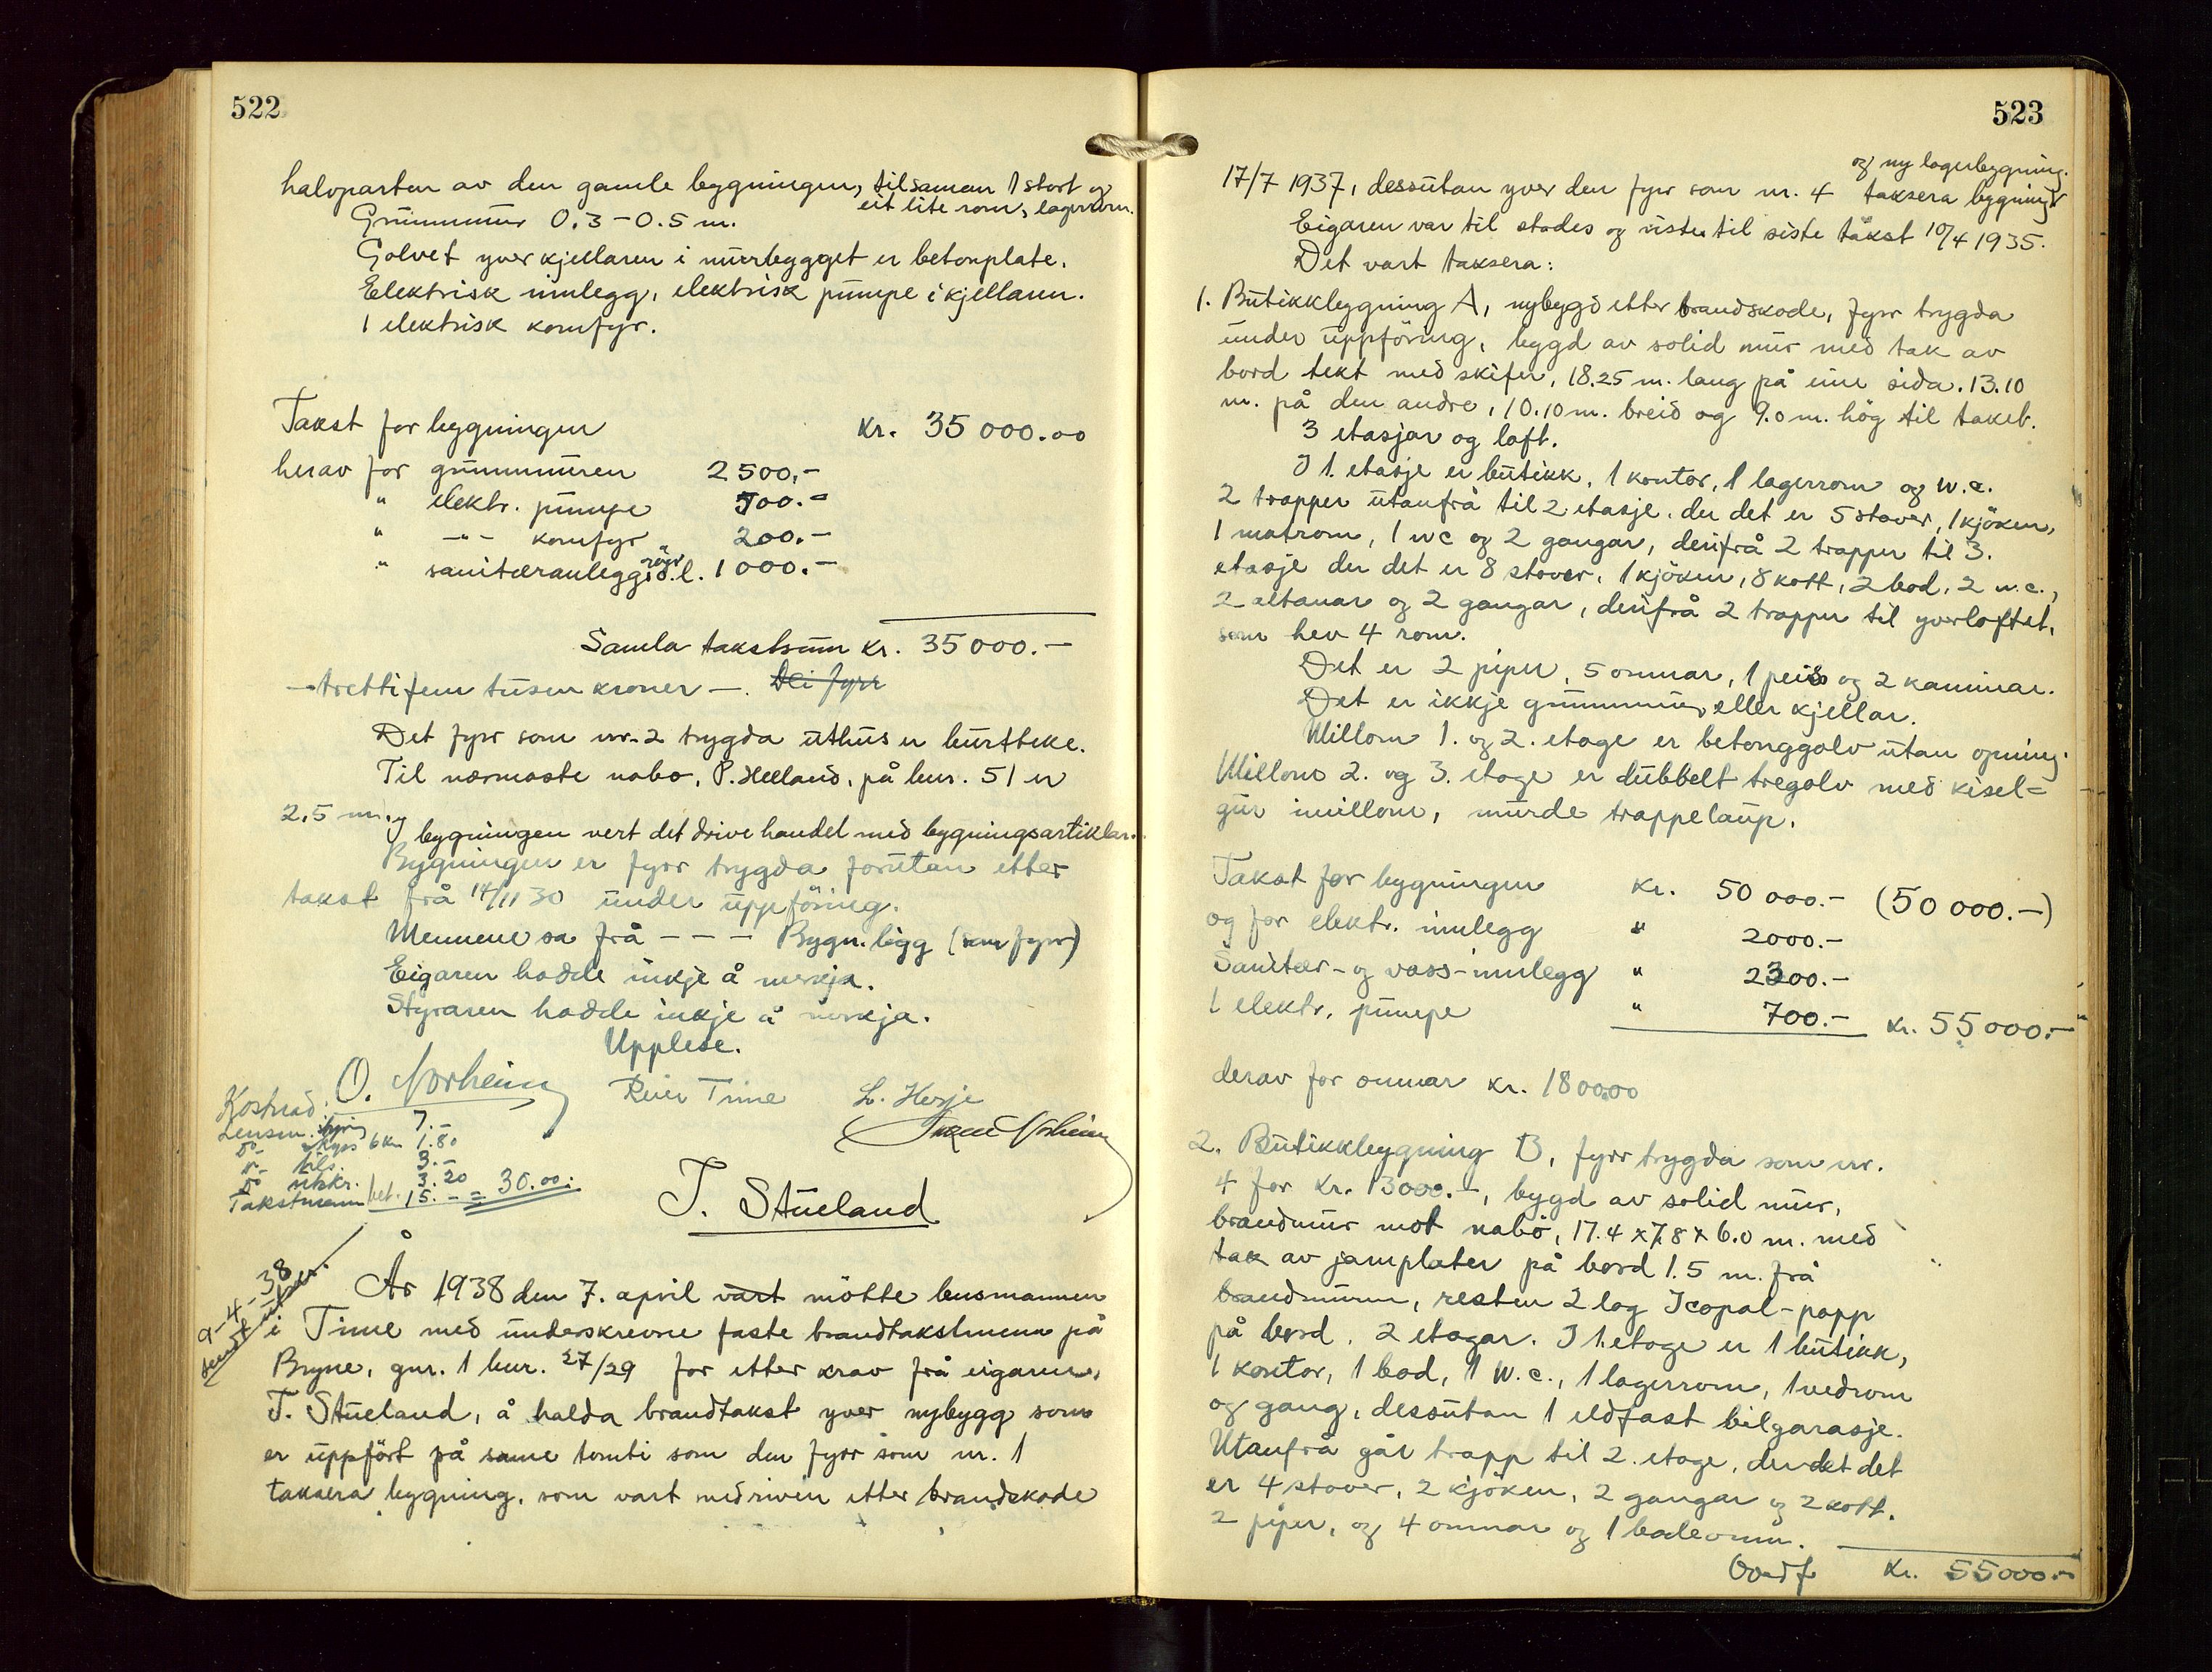 522
halvparten av den gamle bygningen, tilsaman 1 stort og
eit lite rom, lagerrom.
Grunnmur 0.3 - 0.5 m.
Golvet yver kjellaren i murbygget er betonplate.
Elektrisk innlegg, elektrisk pumpe i kjellaren.
1 elektrisk komfyr.
Takst for bygningen kr. 35 000.00
herav for grunnmuren 2 500.-
" elektr. pumpe 500.-
" -"- komfyr 200.-
" sanitæranlegg, røyr o.l. 1 000.-
Samla takstsum kr. 35 000.-
- trettifem tusen kroner -. Dei fyrr
Det fyrr som nr. 2 trygda uthus er burtteke.
Til nærmaste nabo, P. Helland, på bnr. 51 er
2,5 m. I
bygningen vert det drive handel med bygningsartiklar.
Bygningen er fyrr trygda forutan etter
takst frå 14/11 30 under uppföring.
Mennene sa frå - - - Bygn. ligg (som fyrr)
Eigaren hadde inkje å merkja.
Styraren hadde inkje å merkja.
Upplese.
O. Norheim Reier Time L. Herje
Norheim
Kostnad:
Lensm. 7.-
do- skyss 6 km 1.80
do- bils. 3.-
do utskr. 3.20
Takstmenn bet. 15.- = 30.00.
T. Stueland
9-4-38
sendt
År 1938 den 7. april vart mötte lensmannen
i Time med underskrevne faste brandtakstmenn på
Bryne, gnr. 1 bnr. 27/29 for etter krav frå eigaren,
T. Stueland, å halda brandtakst yver nybygg som
er uppfört på same tomti som den fyrr som nr. 1
taksera bygning, som vart nedriven etter brandskade
523
og ny lagerbygning.
17/7 1937, dessutan yver den fyrr som nr. 4 taksera bygning
Eigaren var til stades og viste til siste takst 10/4 1935.
Det vart taksera:
1. Butikkbygning A, nybygd etter brandskade, fyrr trygda
under uppföring, bygd av solid mur med tak av
bord tekt med skifer, 18.25 m. lang på eine sida. 13.10
m. på den andre, 10.10 m. breid og 9.0 m. hög til taket.
3 etasjar og loft.
I 1. etasje er butikk, 1 kontor, 1 lagerrom og w.c.
2 trapper utanfrå til 2. etasje, der det er 5 stover, 1 kjöken,
1 matrom, 1 wc og 2 gangar, derifrå 2 trapper til 3.
etasje der det er 8 stover, 1 kjöken, 8 kott, 2 bod, 2 w.c.,
2 altanar og 2 gangar, derifrå 2 trapper til yverloftet,
som hev 4 rom.
Det er 2 piper, 5 omnar, 1 peis og 2 kaminar.
Det er ikkje grunnmur, eller kjellar.
Millom 1. og 2. etage er betonggolv utan opning.
Millom 2. og 3. etage er dubbelt tregolv med kisel=
gur imillom, murde trappelaup.
Takst for bygningen kr. 50 000.- (50 000.-)
og for elektr. innlegg " 2000.-
Sanitær- og vass-innlegg " 2300.-
1 elektr. pumpe " 700.- kr. 55 000.-
derav for omnar kr. 1800.00
2. Butikkbygning B, fyrr trygda som nr.
4 for kr. 13000.-, bygd av solid mur,
brandmur mot nabo, 17.4 x 7.8 x 6.0 m. med
tak av jarnplater på bord 1.5 m. frå
brandmuren, resten 2 lag Icopal-papp
på bord. 2 etagar. I 1. etage er 1 butikk,
1 kontor, 1 bod, 1 w.c., 1 lagerrom, 1 vedrom
og gang, dessutan 1 eldfast bilgarasje.
Utanfrå går trapp til 2. etage, der det det
er 4 stover, 2 kjöken, 2 gangar og 2 kott.
2 piper, og 4 omnar og 1 badeomn.
Overf. kr. 55000.-